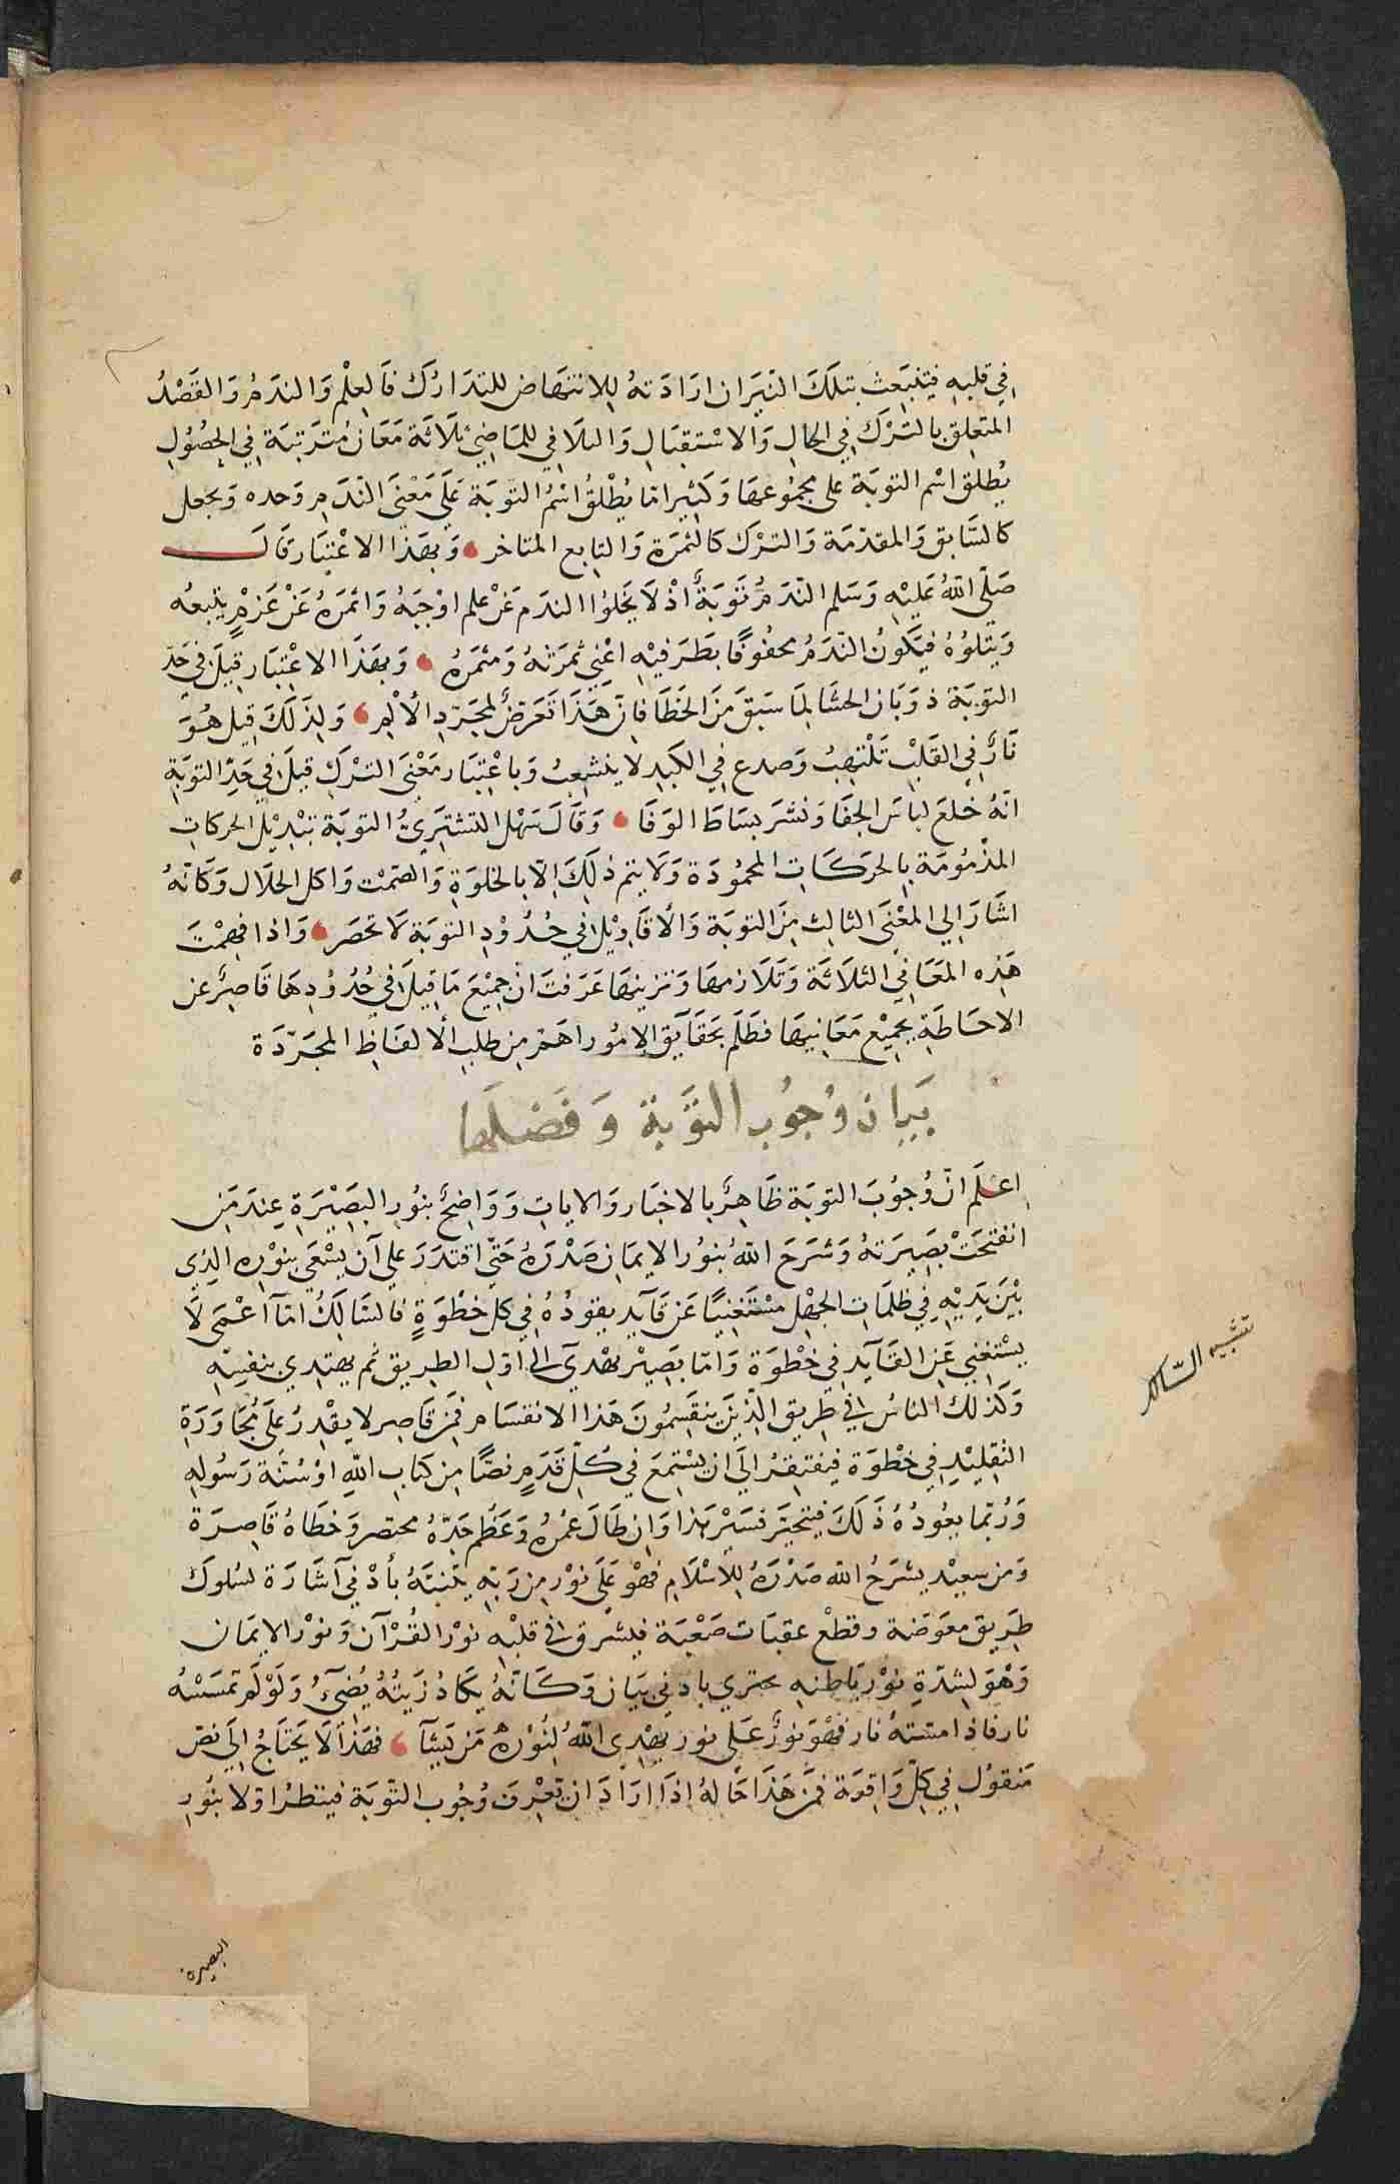 في قلبه فينبعث بتلك النيران ارادته للانتهاض للتدارك فالعلم والندم والقصد
المتعلق بالترك في الحال والاستقبال والتلافي للماضي ثلاثة معان مترتبة في الحصول
يطلق اسم التوبة على مجموعها وكثيرا ما يطلق اسم التوبة على معنى الندم وحده ويجعل
كالسابق والمقدمة والترك كالثمرة والتابع المتاخر وبهذا الاعتبار قال
صلى الله عليه وسلم الندم توبة اذ لا يخلوا الندم عن علم اوجبه واثمره عن عزم يتبعه
ويتلوه فيكون الندم محفوفا بطرفيه اعني ثمرته ومثمره وبهذا الاعتبار قيل في حد
التوبة ذوبان الحشا لما سبق من الخطا فان هذا تعرض لمجرد الالم ولذلك قيل هو
نار في القلب تلتهب وصدع في الكبد لا ينشعب وباعتبار معنى الترك قيل في حد التوبة
انه خلع لباس الجفا ونشر بساط الوفا وقال سهل التشتري التوبة تبديل الحركات
المذمومة بالحركات المحمودة ولا يتم ذلك الا بالخلوة والصمت واكل الحلال وكانه
اشار الي المعنى الثالث من التوبة والاقاويل في حدود التوبة لا تحصر واذا فهمت
هذه المعاني الثلاثة وتلازمها وترتيبها عرفت ان جميع ما قيل في حدودها قاصر عن
الاحاطة بجميع معانيها فطلم بحقايق الامور اهم من طلب الالفاظ المجردة
بيان وجوب التوبة وفضلها
اعلم ان وجوب التوبة ظاهر بالاخبار والايات وواضح بنور البصيرة عند من
انفتحت بصيرته وشرح الله بنور الايمان صدره حتى اقتدر على ان يسعى بنوره الذي
بين يديه في ظلمات الجهل مستغنيا عن قآيد يقوده في كل خطوة فالسالك اما اعمى لا
يستغني عن القآيد في خطوة واما بصير يهدي الى اول الطريق ثم يهتدي بنفسه
وكذلك الناس في طريق الدين ينقسمون هذا الانقسام فمن قاصر لا يقدر على مجاورة
التقليد في خطوة فيفتقر الى ان يستمع في كل قدم نصا من كتاب الله او سنة رسوله
وربما يعوده ذلك فيتحير فسير هذا وان طال عمره وعظم جده مختصر وخطاه قاصرة
ومن سعيد يشرح الله صدره للاسلام فهو على نور من ربه يتنبه بأدني آشارة لسلوك
طريق معوضة وقطع عقبات صعبة فيشرق في قلبه نور القرآن ونور الايمان
وهو لشدة نور باطنه يجتري بادني بيان وكانه يكاد زيته يضيء ولو لم تمسسه
نار فاذا مسته نار فهو نور على نور يهدي الله لنوره من يشآ فهذا لا يحتاج الى نص
منقول في كل واقعة فمن هذا حاله اذا اراد ان يعرف وجوب التوبة فينظر اولا بنور
تشبيه السالك
البصيرة